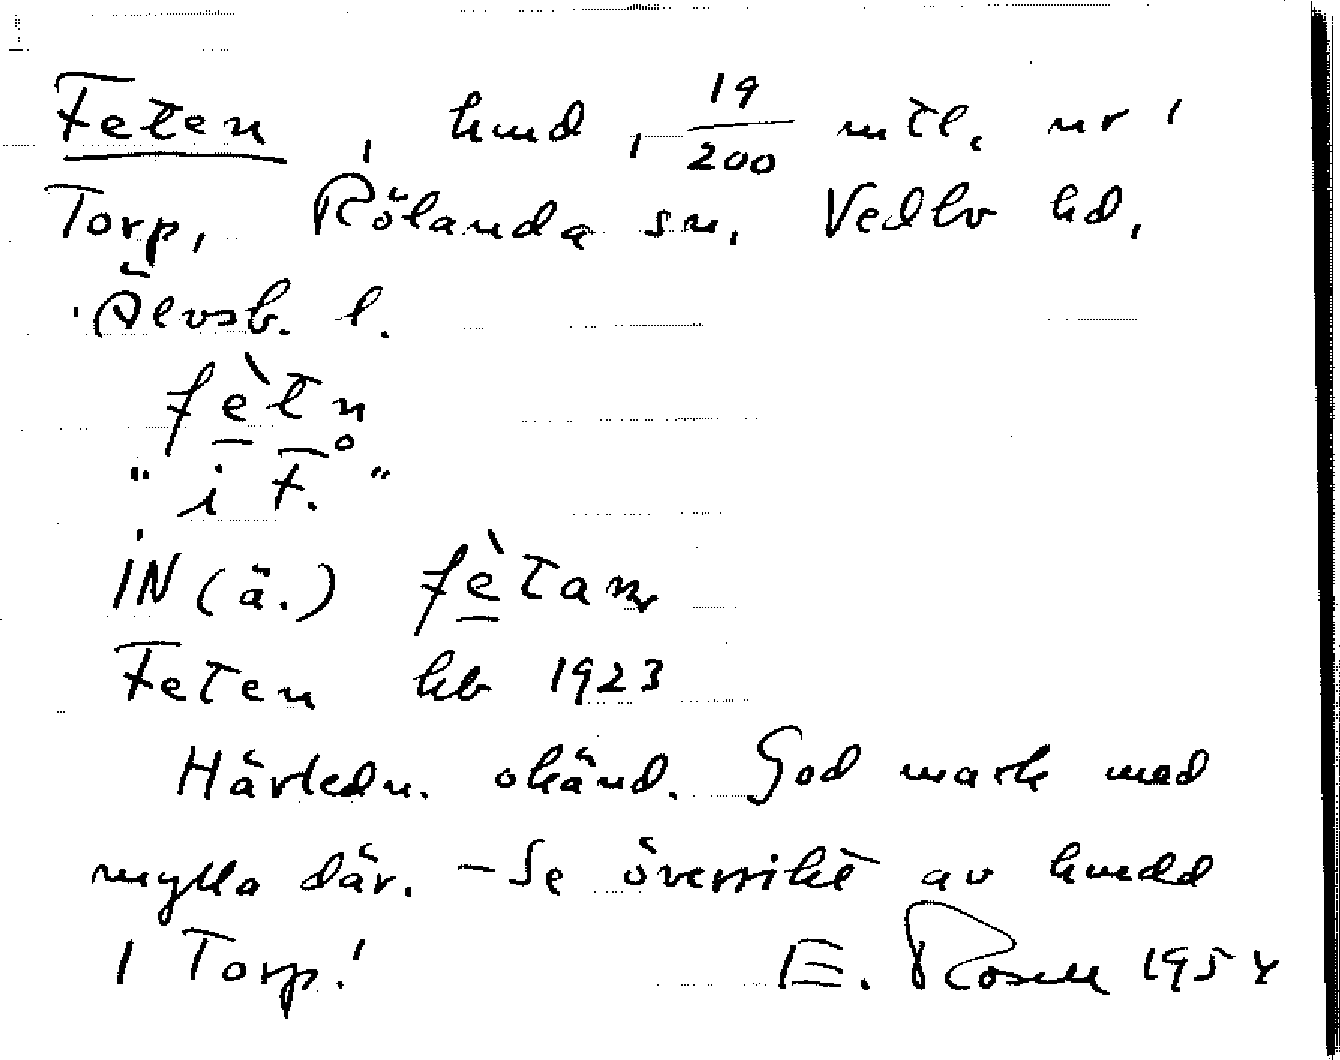 Feten, hmd, 19/200 mtl. nr 1
Torp, Rölanda sn, Vedbo hd,
Älvsb. l.
fè̱tn̥
"i F."
IN (ä.) fè̱tanr
Feten kb 1923
Härledn. okänd. God mark med
mylla där. – Se översikt av hmdd
1 Torp! E. Rosell 1954